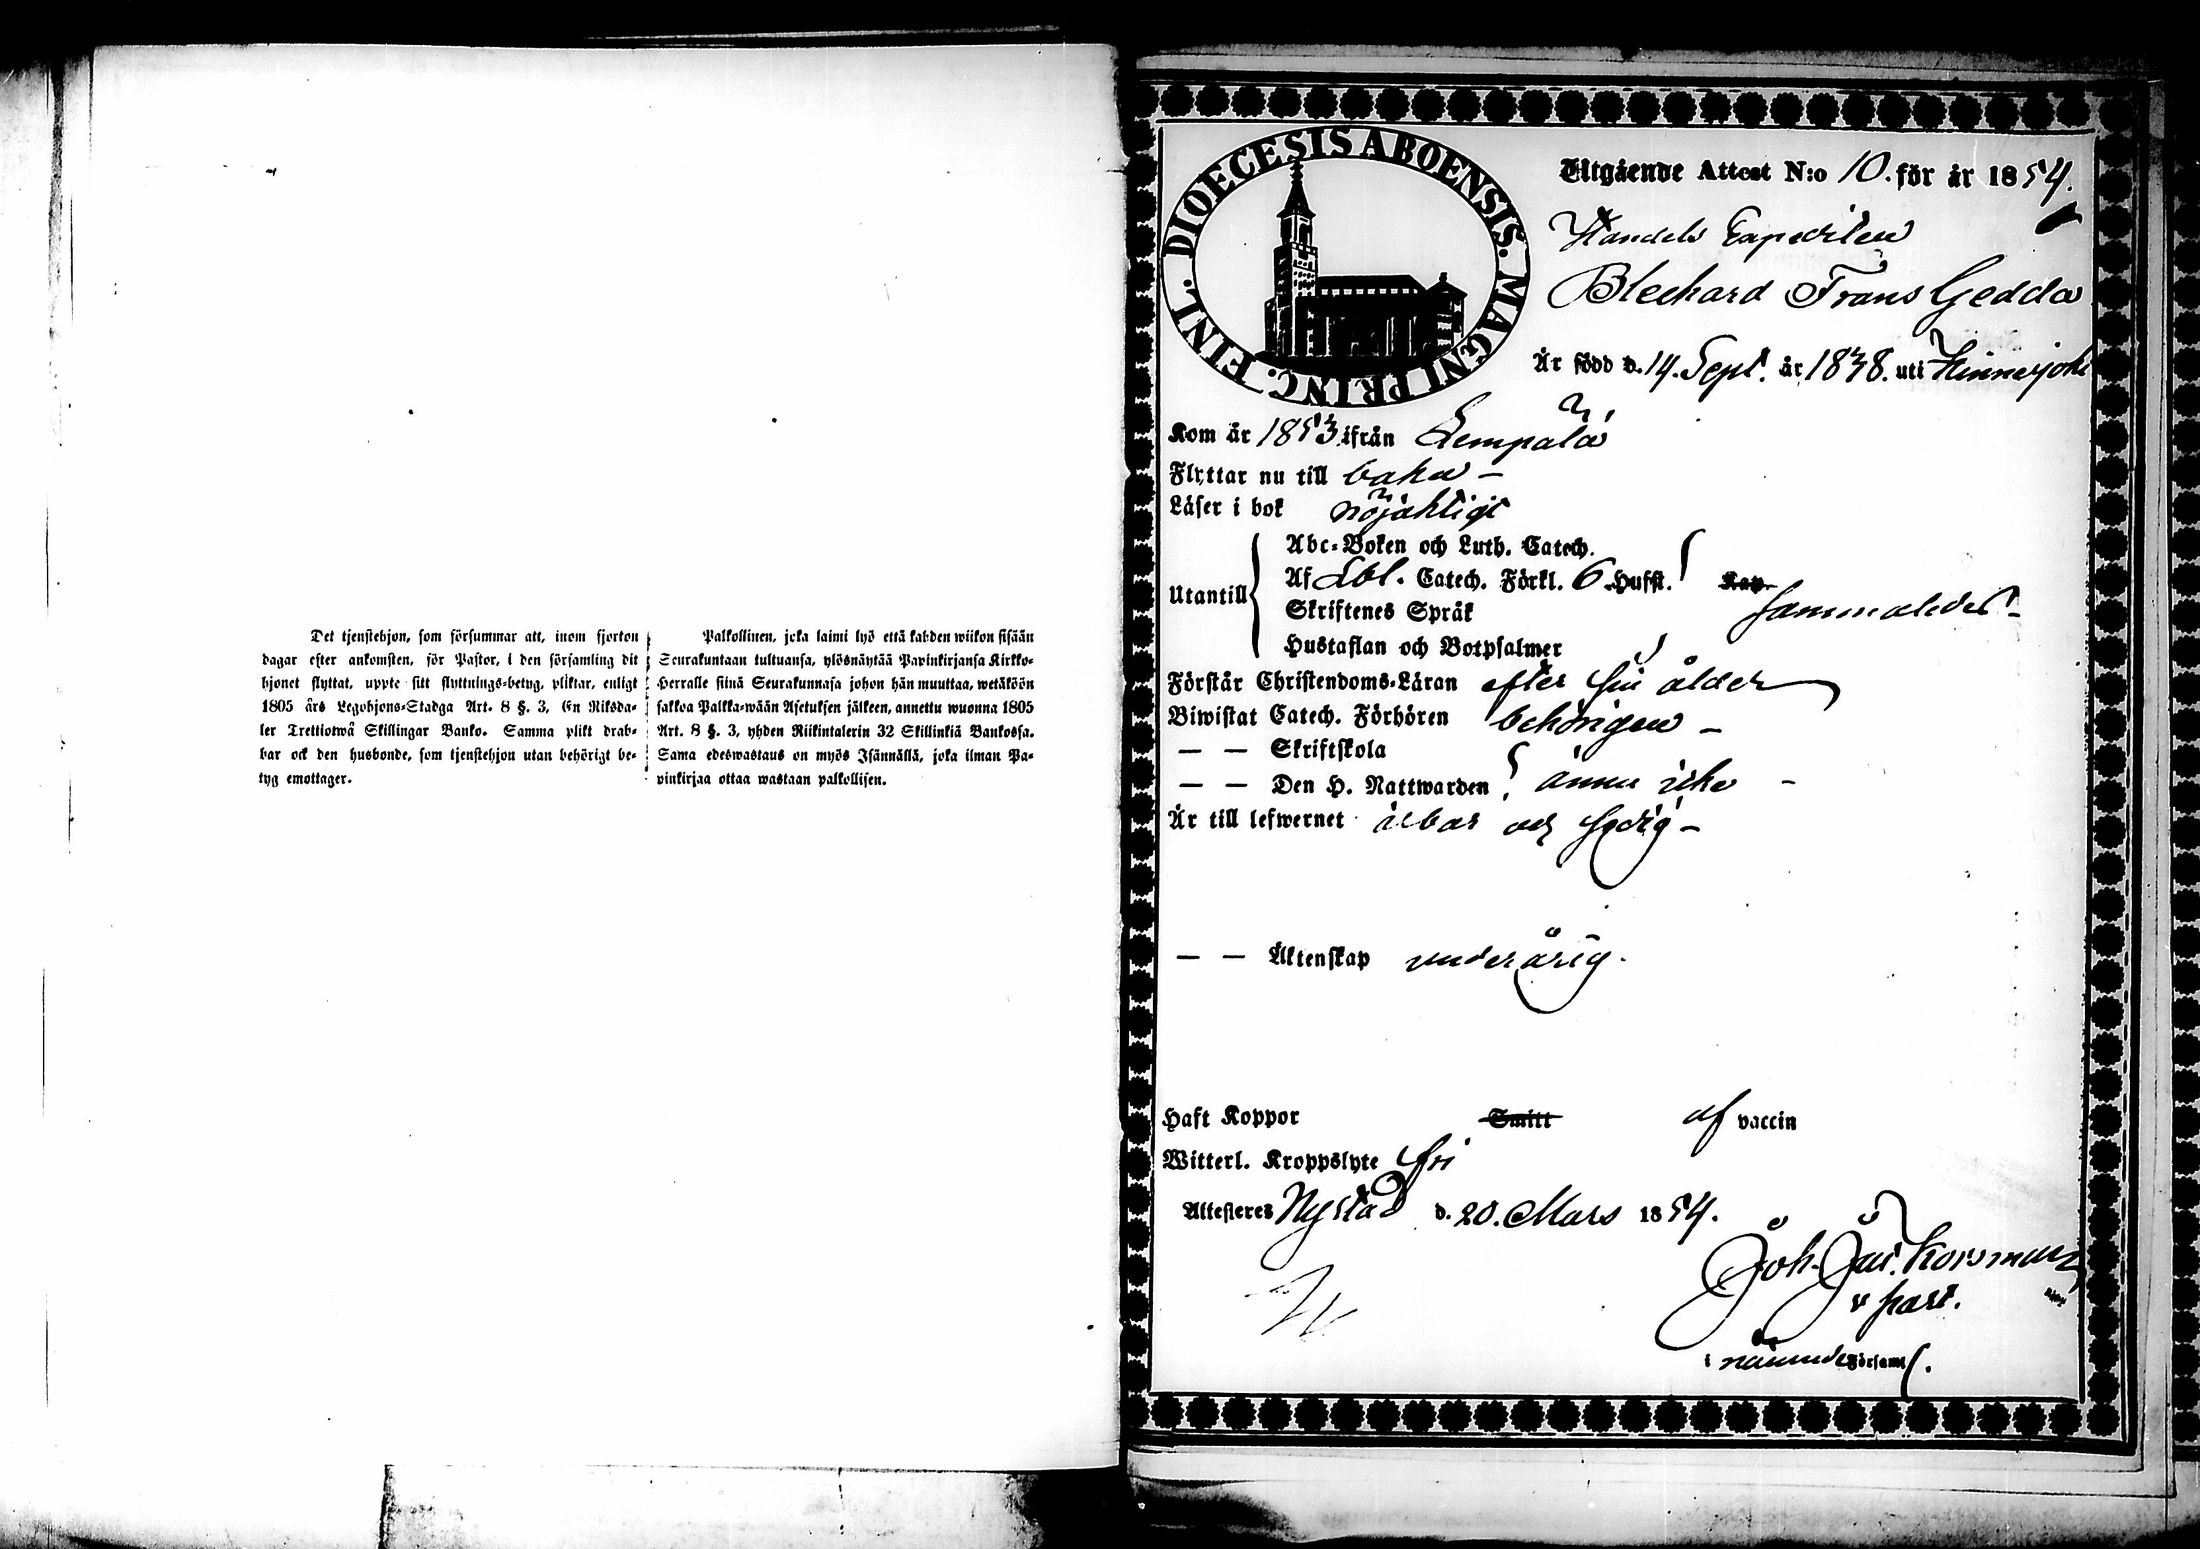 Det tjenstehjon, som försummar att, inom fjorton
dagar efter ankomsten, för Pastor, i den församling dit
hjonet flyttat, uppte sitt flyttnings-betyg, pliktar, enligt
1805 års Legohjons-Stadga Art. 8 §. 3, En Riksda-
ler Trettiotwå Skillingar Banko. Samma plikt drab-
bar ock den husbonde, som tjenstehjon utan behörigt be-
tyg emottager.
Palkollinen, joka laimi lyö että kahden wiikon sisään
Seurakuntaan tultuansa, ylösnäytää Papinkirjansa Kirkko-
Herralle siinä Seurakunnasa johon hän muuttaa, wetäköön
sakkoa Palkka-wään Asetuksen jälkeen, annettu wuonna 1805
Art. 8 §. 3, yhden Riikintalerin 32 Skillinkiä Bankossa.
Sama edeswastaus on myös Isännällä, joka ilman Pa-
pinkirjaa ottaa wastaan palkollisen.
DIOECESIS ABOENSIS. MAGNI PRINC. FINL.
Utgående Attest N:o 10. för år 1854.
Handels Expediten
Blechard Frans Gedda
Är född d. 14. Sept. år 1838. uti Hinnerjoki
Kom år 1853 ifrån Lempälä
Flyttar nu till baka –
Läser i bok nöjaktigt
Utantill
Abc-Boken och Luth. Catech.
Af Lbl. Catech. Förkl. 6 Hufst. Kap.
Skriftenes Språk sammaledes –
Hustaflan och Botpsalmer
Förstår Christendoms-Läran efter sin ålder
Biwistat Catech. Förhören behörigen –
— — Skriftskola
— — Den H. Nattwarden ännu icke –
Är till lefwernet ärbar och sedig –
— — Äktenskap underårig.
Haft Koppor Smitt af vaccin
Witterl. Kroppslyte fri
Attesteres Nystad d. 20. Mars 1854.
Joh. Jac. Korsman
v past.
i nämnde Församl.